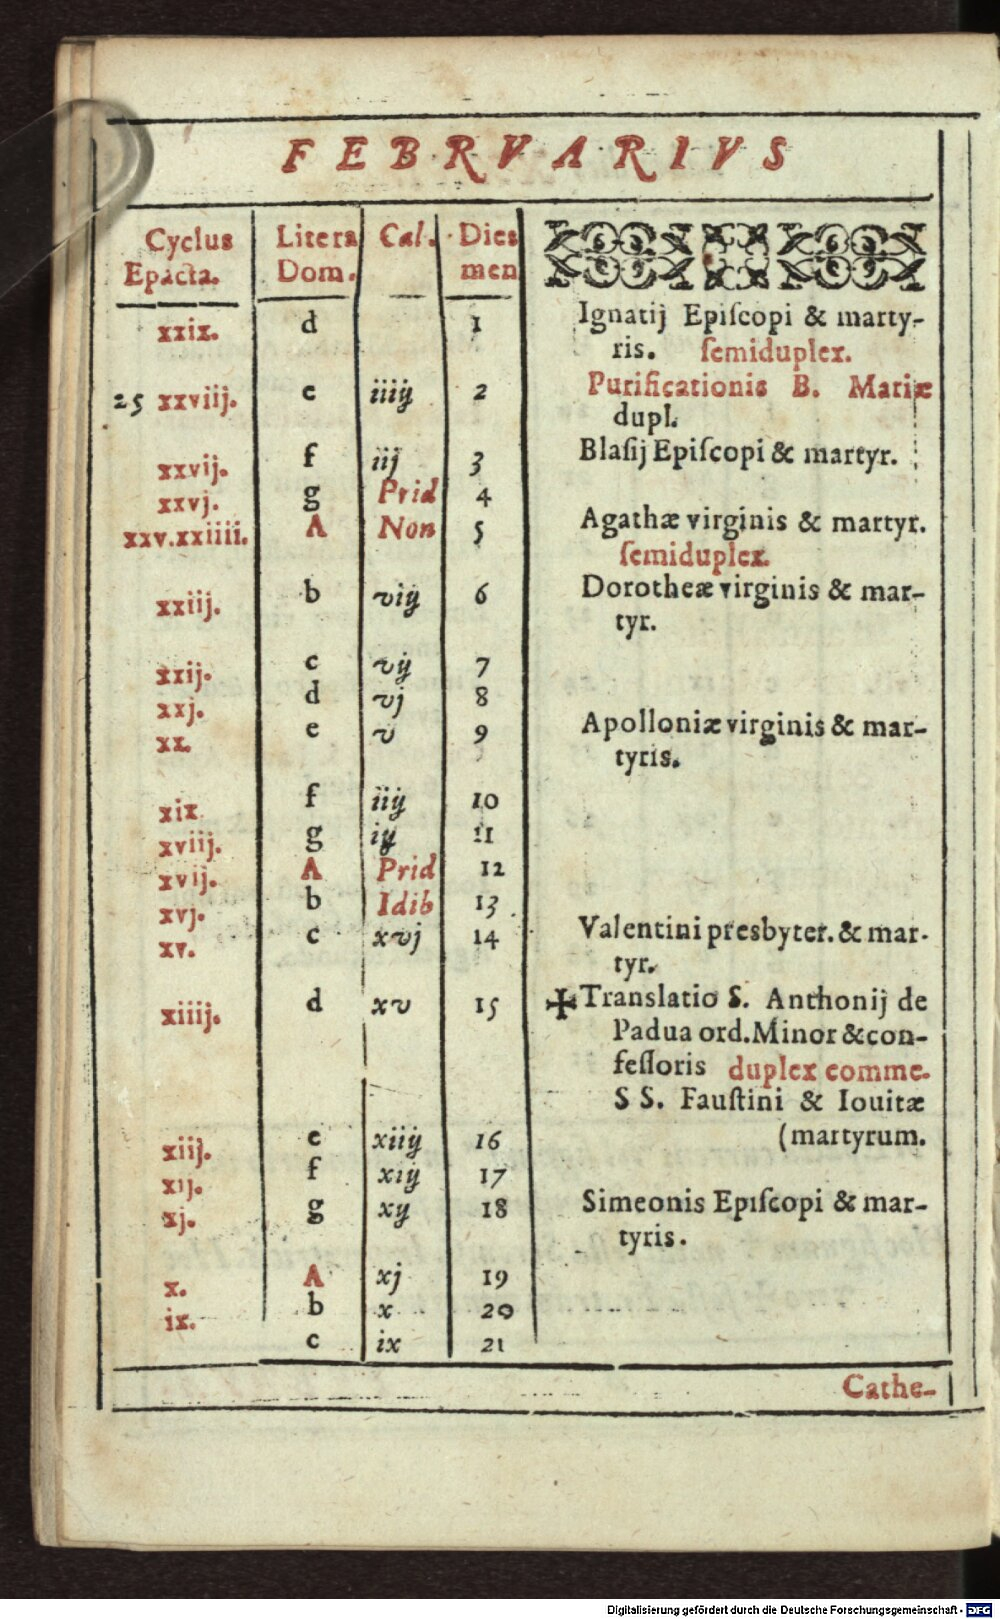 FEBRVARIVS
Cyclus Epacta. Litera Dom. Cal. Dies men
xxix. d 1 Ignatij Epiſcopi & marty-
ris. ſemiduplex.
25 xxviij. e iiij 2 Purificationis B. Mariæ
dupl.
xxvij. f iij 3 Blaſij Epiſcopi & martyr.
xxvj. g Prid 4
xxv.xxiiii. A Non 5 Agathæ virginis & martyr.
ſemiduplex.
xxiij. b viij 6 Dorotheæ virginis & mar-
tyr.
xxij. c vij 7
xxj. d vj 8
xx. e v 9 Apolloniæ virginis & mar-
tyris.
xix f iiij 10
xviij. g iij 11
xvij. A Prid 12
xvj. b Idib 13
xv. c xvj 14 Valentini presbyter. & mar-
tyr.
xiiij. d xv 15 ✠Translatio S. Anthonij de
Padua ord. Minor & con-
feſſoris duplex comme.
S S. Fauſtini & Iouitæ
(martyrum.
xiij. e xiiij 16
xij. f xiij 17
xj. g xij 18 Simeonis Epiſcopi & mar-
tyris.
x. A xj 19
ix. b x 20
c ix 21
Cathe-
Digitalisierung gefördert durch die Deutsche Forschungsgemeinschaft - DFG